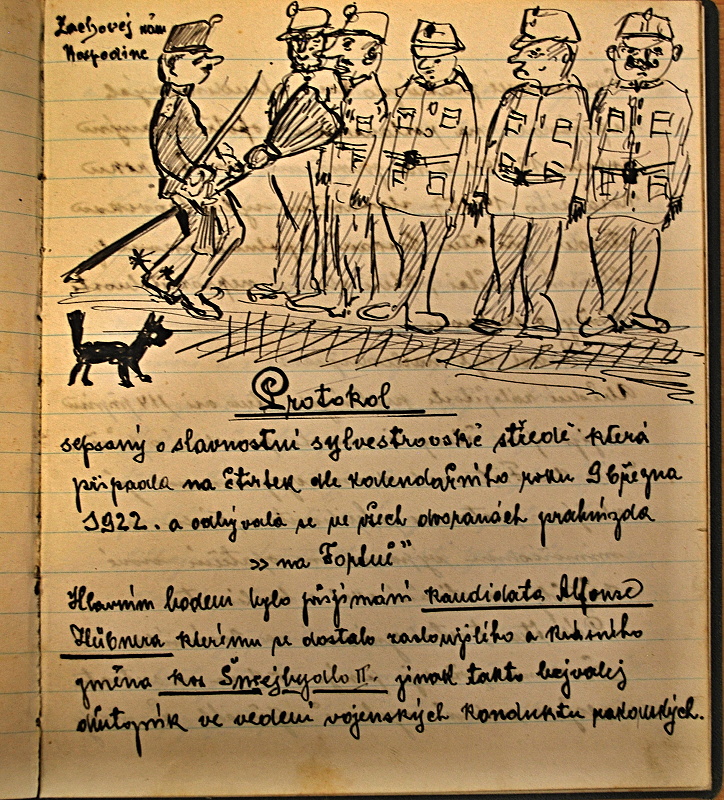 Zachovej nám
Hospodine
Protokol
sepsaný o slavnostní sylvestrovské středě která
připadla na čtvrtek dle kalendářního roku 9 března
1922. a odbývala se ve všech dvoranách prahnízda
„na Fortně"
Hlavním bodem bylo přijímání kandidáta Alfonse
Hübnera kterému se dostalo zasloužilého a krásného
gména kos Šmejbydlo II. jinak takto bejvalej
ve vedení vojenských konduktu rakouských.